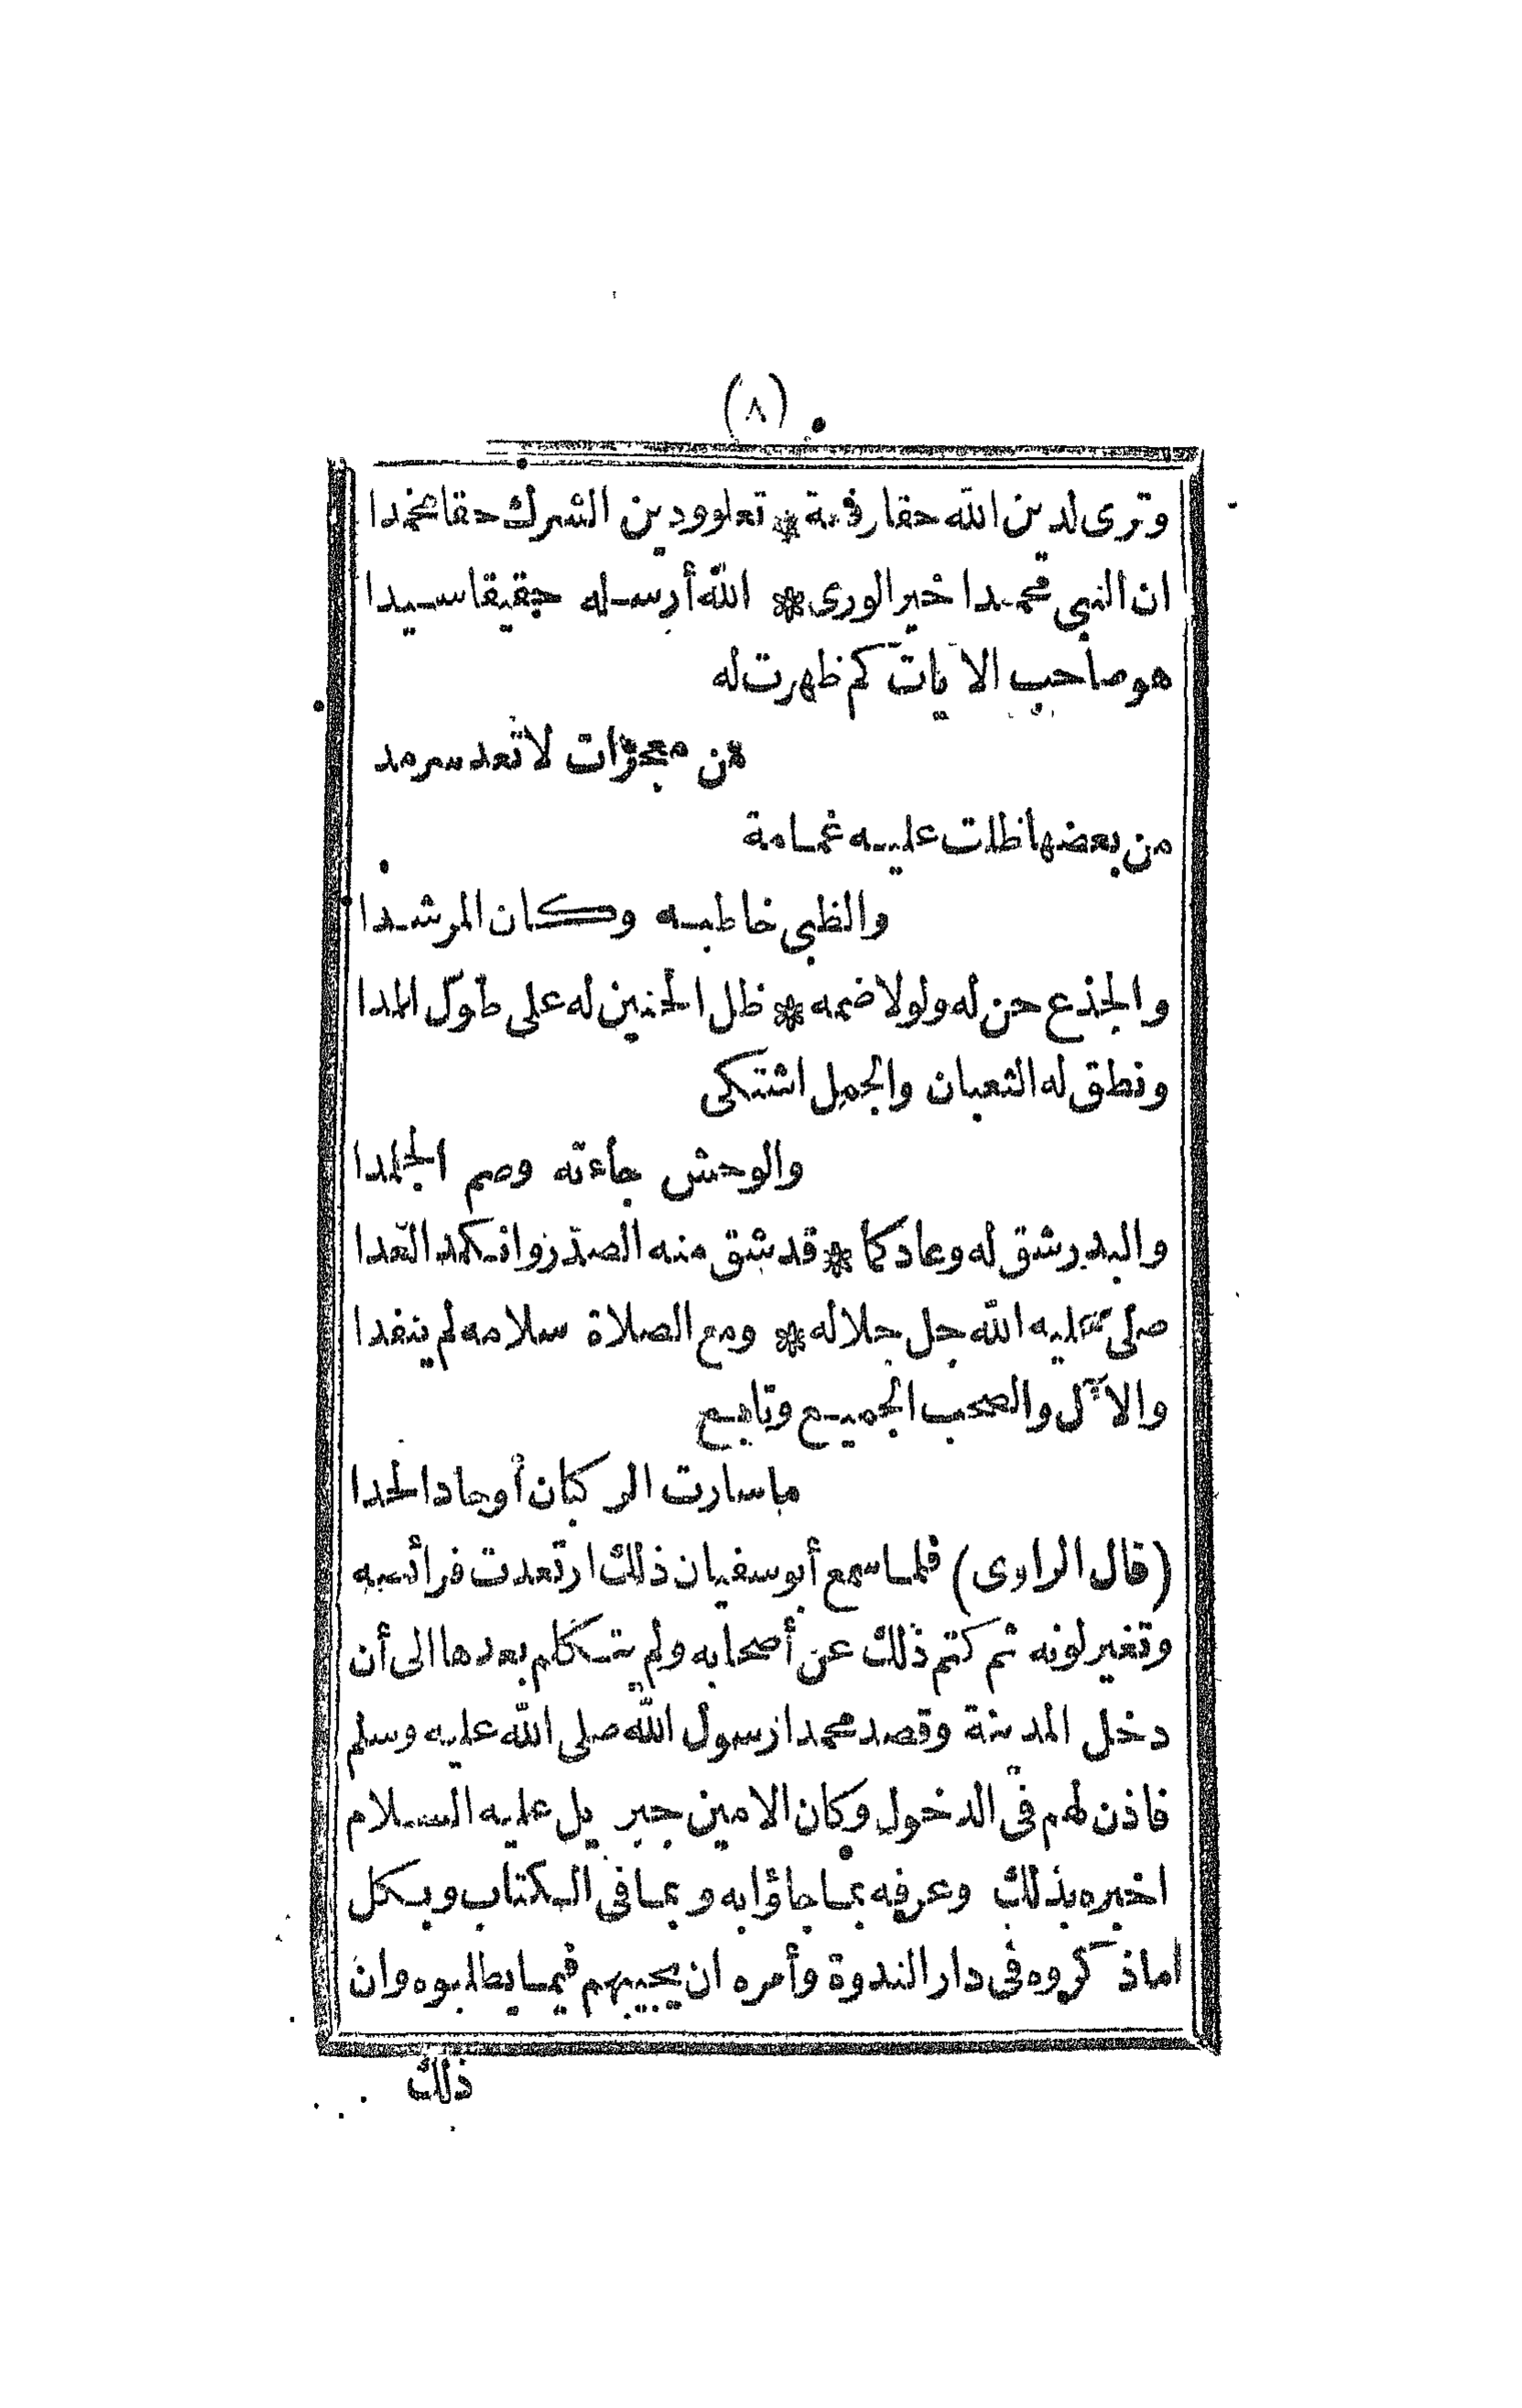 (٨)
وترى لدين الله حقا رفعة * تعلو ودين الشرك حقا مخمدا
ان النبى محمدا خير الورى * الله أرسله حقيقا سيدا
هو صاحب الآيات كم ظهرت له
من معجزات لا تعد سرمد
من بعضها ظلت عليه غمامة
والظبى خاطبه وكان المرشدا
والجذع حن له ولولا ضمه * ظل الحنين له على طول المدا
ونطق له الثعبان والجمل اشتكى
والوحش جاءته وصم الجلمدا
والبدر شق له وعاد كما * قد شق منه الصدر وانكمد العدا
صلى عليه الله جل جلاله * ومع الصلاة سلامه لم ينفدا
والآل والصحب الجميع وتابع
ما سارت الركبان أو حاد الحدا
(قال الراوى) فلما سمع أبو سفيان ذلك ارتعدت فرائصه
وتغير لونه ثم كتم ذلك عن أصحابه ولم يتكلم بعدها الى أن
دخل المدينة وقصد محمدا رسول الله صلى الله عليه وسلم
فاذن لهم فى الدخول وكان الامين جبريل عليه السلام
اخبره بذلك وعرفه بما جاؤا به وبما فى الكتاب وبكل
ماذكروه فى دار الندوة وأمره ان يجيبهم فيما يطلبوه وان
ذلك